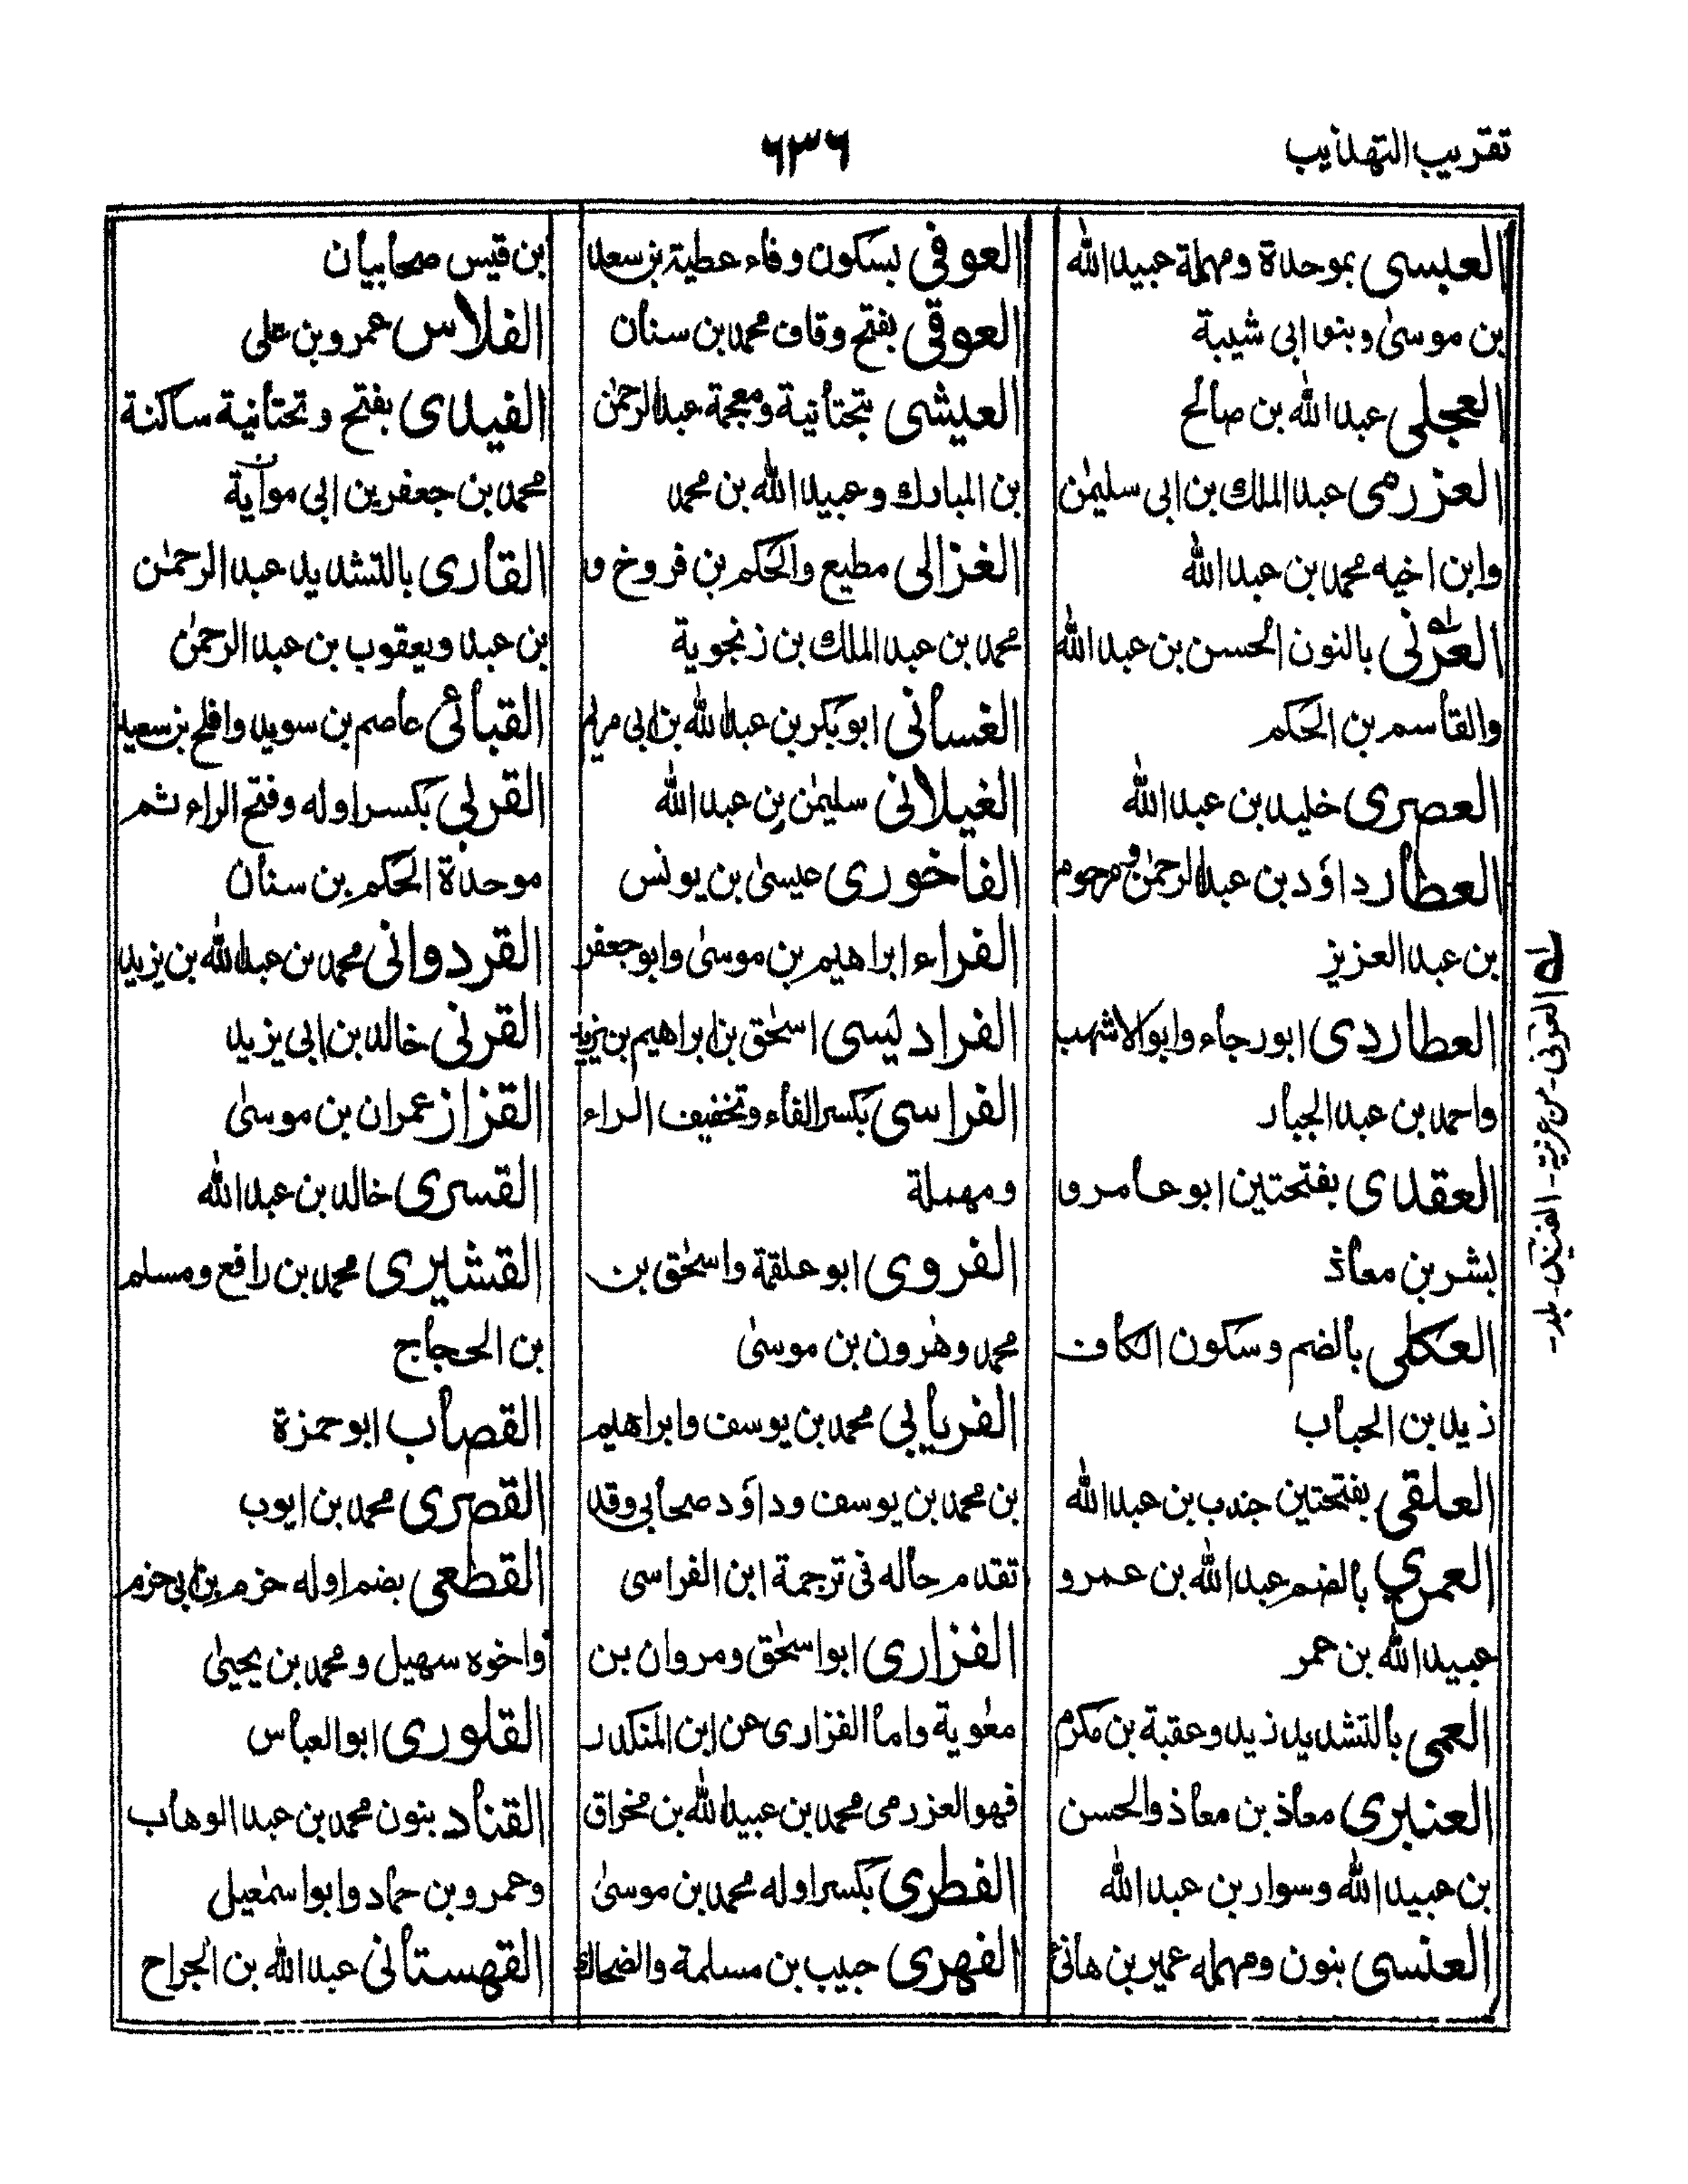 تقريب التهذيب
٦٣٦
العبسى بموحدة ومهملة عبيد الله
بن موسىٰ وبنوا ابى شيبة
العجلى عبد الله بن صالح
العزرمى عبد الملك بن ابى سليمٰن
وابن اخيه محمد بن عبد الله
العرنى بالنون الحسن بن عبد الله
والقاسم بن الحكم
العصرى خليد بن عبد الله
العطار داؤد بن عبد الرحمٰن ومرحوم
بن عبد العزيز
العطاردى ابو رجاء وابو الاشهب
واحمد بن عبد الجبار
العقدى بفتحتين ابو عامر و
بشر بن معاذ
العكلى بالضم وسكون الكاف
زيد بن الحباب
العلقى بفتحتين جندب بن عبد الله
العمرى بالضم عبد الله بن عمر و
عبيد الله بن عمر
العمى بالتشديد زيد وعقبة بن مكرم
العنبرى معاذ بن معاذ والحسن
بن عبيد الله وسوار بن عبد الله
العنسى بنون ومهمله عمير بن هانئ
العوفى بسكون وفاء عطية بن سعد
العوقى بفتح وقاف محمد بن سنان
العيشى بتحتانية ومعجمة عبد الرحمٰن
بن المبارك وعبيد الله بن محمد
الغزالى مطيع والحكم بن فروخ و
محمد بن عبد الملك بن زنجوية
الغسانى ابو بكر بن عبد الله بن ابى مريم
الغيلانى سليمٰن بن عبد الله
الفاخورى عيسىٰ بن يونس
الفراء ابراهيم بن موسىٰ وابو جعفر
الفراديسى اسحٰق بن ابراهيم بن يزيد
الفراسى بكسر الفاء وتخفيف الراء
ومهملة
الفروى ابو علقمة واسحٰق بن
محمد وهٰرون بن موسىٰ
الفريابى محمد بن يوسف وابراهيم
بن محمد بن يوسف وداؤد صحابى وقد
تقدم حاله فى ترجمة ابن الفراسى
الفزارى ابو اسحٰق ومروان بن
معٰوية واما الفزارى عن ابن المنكدر
فهو العزرمى محمد بن عبيد الله بن مخراق
الفطرى بكسر اوله محمد بن موسىٰ
الفهرى حبيب بن مسلمة والضحاك
بن قيس صحابيان
الفلاس عمرو بن على
الفيدى بفتح وتحتانية ساكنة
محمد بن جعفر بن ابى مواية
القارى بالتشديد عبد الرحمٰن
بن عبد ويعقوب بن عبد الرحمٰن
القبائى عاصم بن سويد وافلح بن سعيد
القربى بكسر اوله وفتح الراء ثم
موحدة الحكم بن سنان
القردوانى محمد بن عبد الله بن يزيد
القرنى خالد بن ابى يزيد
القزاز عمران بن موسىٰ
القسرى خالد بن عبد الله
القشيرى محمد بن رافع ومسلم
بن الحجاج
القصاب ابو حمزة
القصرى محمد بن ايوب
القطعى بضم اوله حزم بن ابى حزم
واخوه سهيل ومحمد بن يحيىٰ
القلورى ابو العباس
القناد بنون محمد بن عبد الوهاب
وعمرو بن حماد وابو اسمٰعيل
القهستانى عبد الله بن الجراح
العرنى - من عرنية -